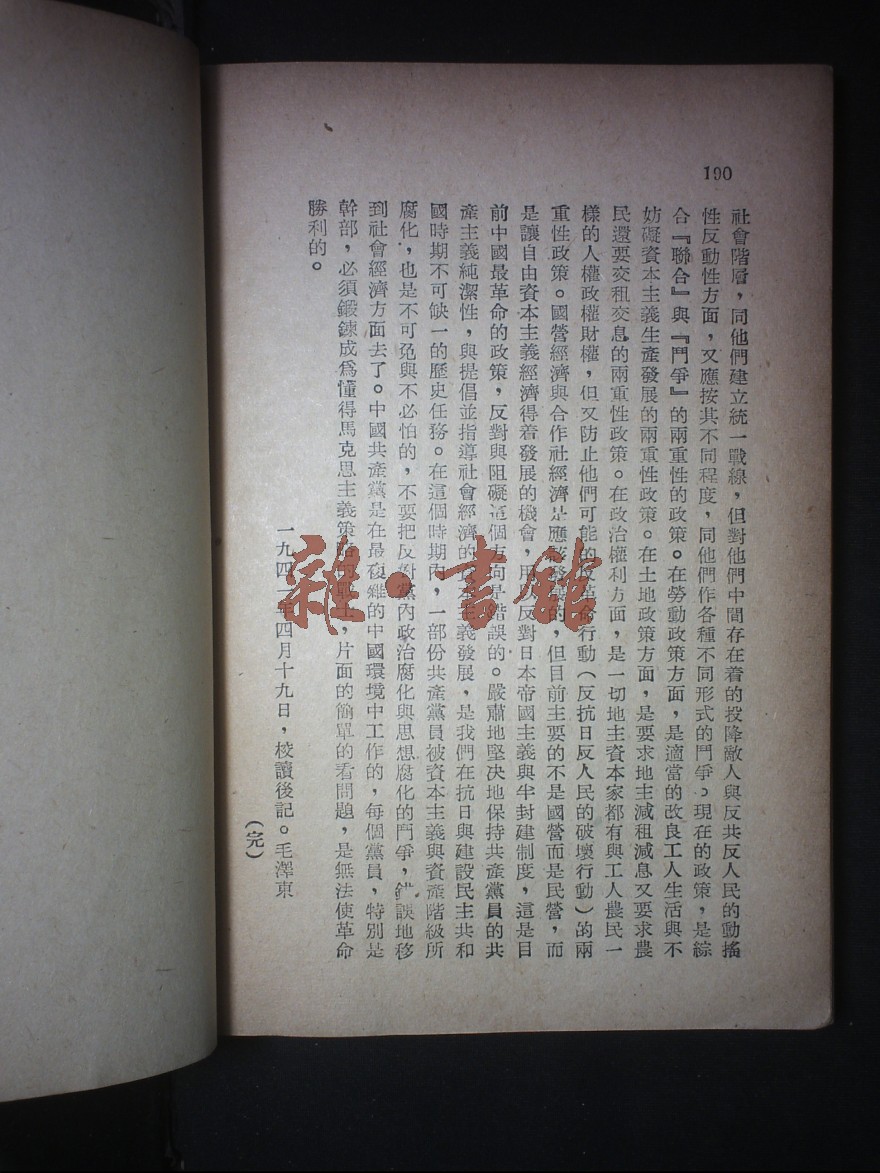 190
社會階層，同他們建立統一戰線，但對他們中間存在着的投降敵人與反共反人民的動搖
性反動性方面，又應按其不同程度，同他們作各種不同形式的鬥爭。現在的政策，是綜
合『聯合』與『鬥爭』的兩重性的政策。在勞動政策方面，是適當的改良工人生活與不
妨礙資本主義生產發展的兩重性政策。在土地政策方面，是要求地主減租減息又要求農
民還要交租交息的兩重性政策。在政治權利方面，是一切地主資本家都有與工人農民一
樣的人權政權財權，但又防止他們可能的反革命行動（反抗日反人民的破壞行動）的兩
重性政策。國營經濟與合作社經濟是應該發展的，但目前主要的不是國營而是民營，而
是讓自由資本主義經濟得着發展的機會，用以反對日本帝國主義與半封建制度，這是目
前中國最革命的政策，反對與阻礙這個方向是錯誤的。嚴肅地堅决地保持共產黨員的共
產主義純潔性，與提倡並指導社會經濟的資本主義發展，是我們在抗日與建設民主共和
國時期不可缺一的歷史任務。在這個時期內，一部份共產黨員被資本主義與資產階級所
腐化，也是不可免與不必怕的，不要把反對黨內政治腐化與思想腐化的鬥爭，錯誤地移
到社會經濟方面去了。中國共產黨是在最複雜的中國環境中工作的，每個黨員，特別是
幹部，必須鍛鍊成爲懂得馬克思主義策略的戰士，片面的簡單的看問題，是無法使革命
勝利的。
一九四一年四月十九日，校讀後記。毛澤東
（完）
雜·書館